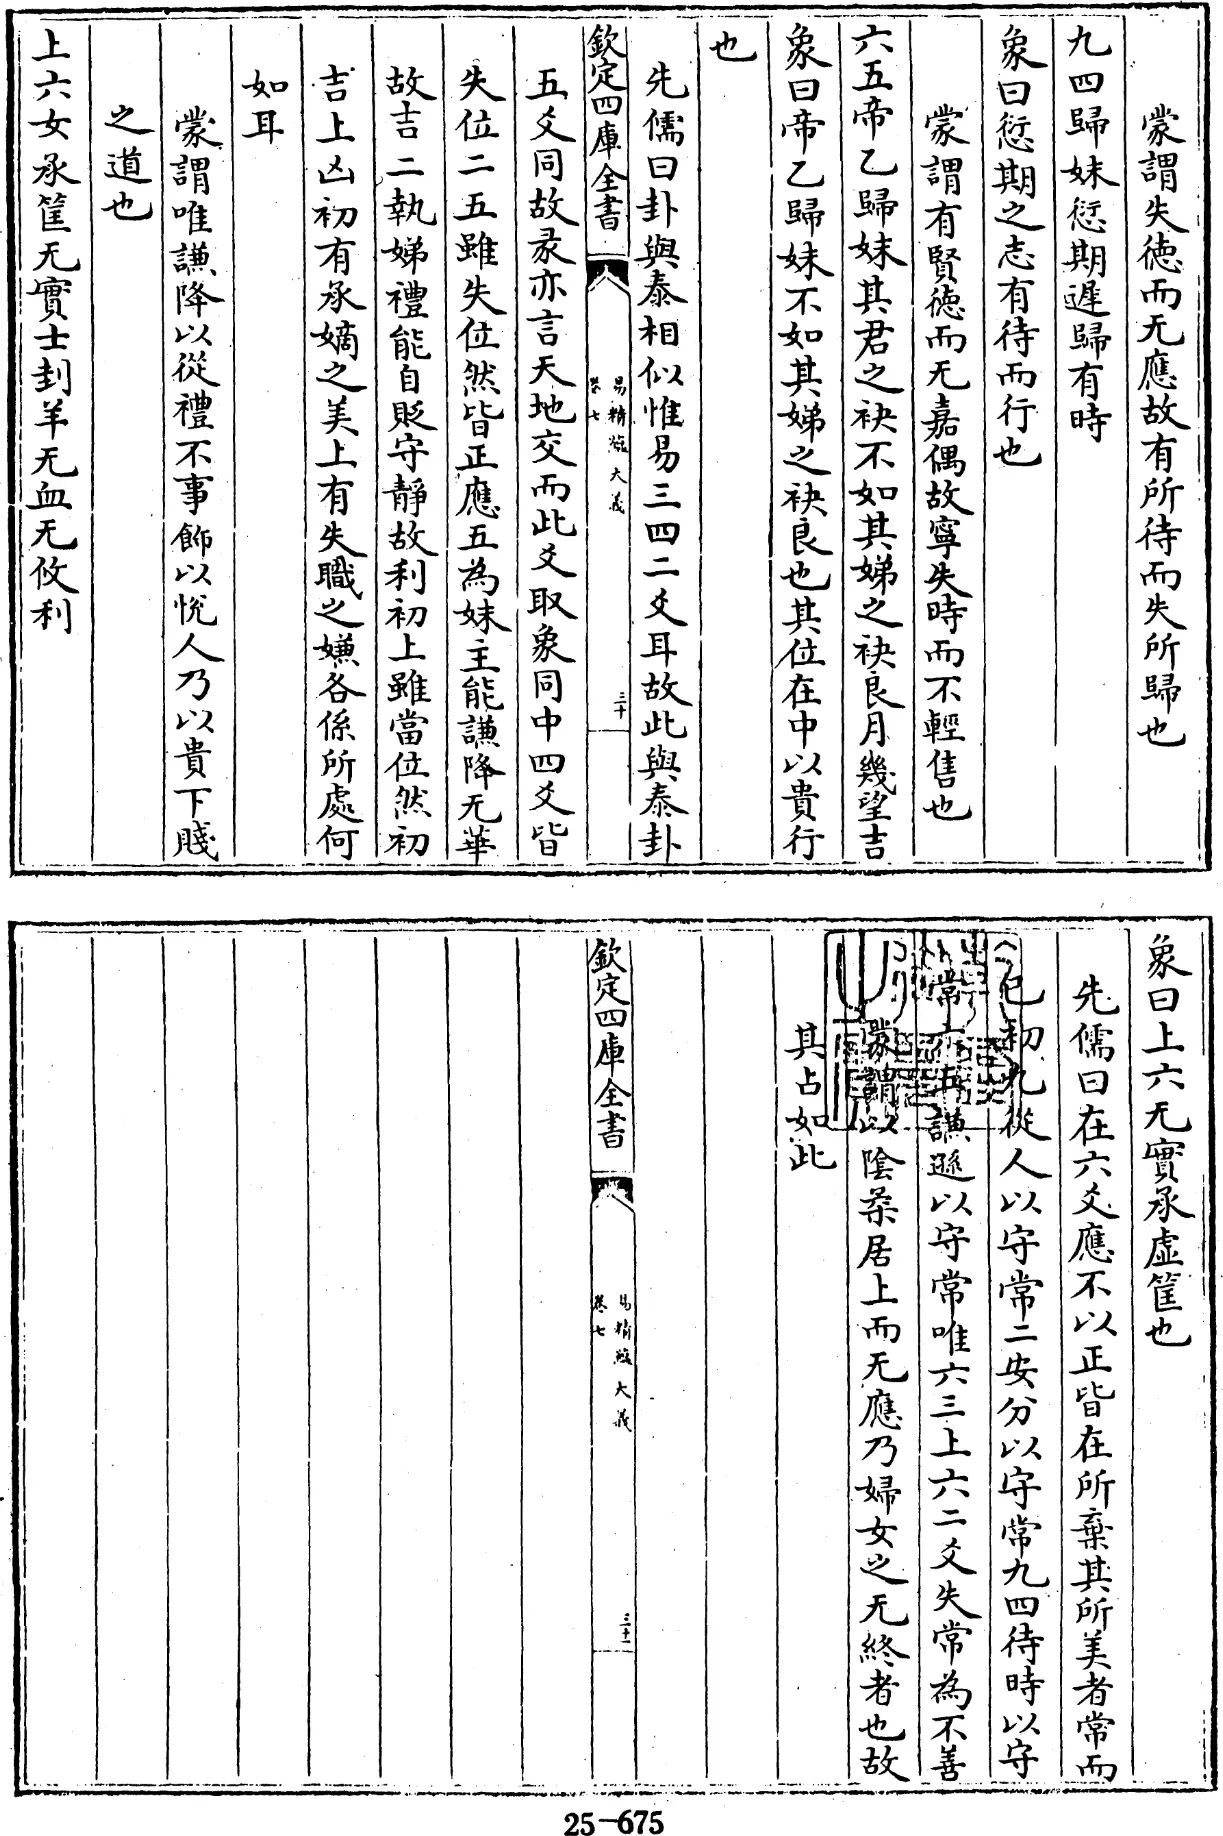 蒙謂失徳而无應故有所待而失所歸也
九四歸妹愆期遲歸有時
象曰愆期之志有待而行也
蒙謂有賢徳而无嘉偶故寧失時而不輕售也
六五帝乙歸妹其君之袂不如其娣之袂良月幾望吉
象曰帝乙歸妹不如其娣之袂良也其位在中以貴行
也
先儒曰卦與泰相似惟易三四二爻耳故此與泰卦
欽定四庫全書
易精蘊大義
卷七
三十
五爻同故彖亦言天地交而此爻取象同中四爻皆
失位二五雖失位然皆正應五為妹主能謙降无華
故吉二執娣禮能自貶守靜故利初上雖當位然初
吉上凶初有承嫡之美上有失職之嫌各係所處何
如耳
蒙謂唯謙降以從禮不事飾以悅人乃以貴下賤
之道也
上六女承筐无實士刲羊无血无攸利
象曰上六无實承虛筐也
先儒曰在六爻應不以正皆在所棄其所美者常而
已初九從人以守常二安分以守常九四待時以守
常六五謙遜以守常唯六三上六二爻失常為不善
蒙謂以陰柔居上而无應乃婦女之无終者也故
其占如此
欽定四庫全書
易精蘊大義
卷七
三十一
25-675